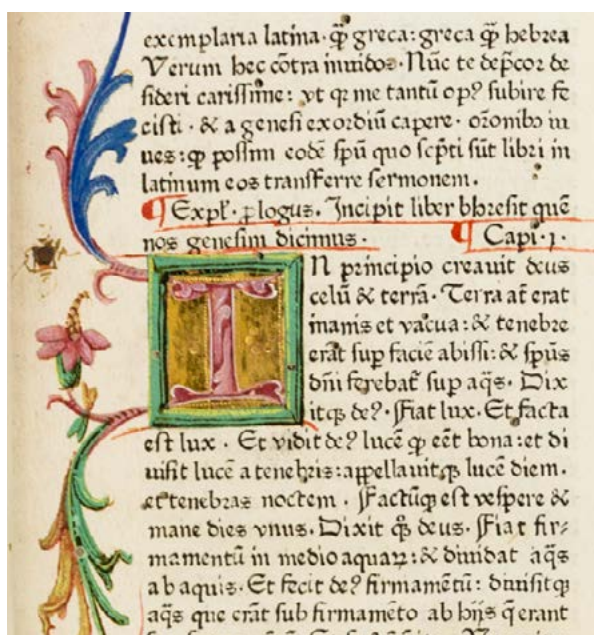 exemplaria latina· q̄ꝫ greca: greca q̄ꝫ hebrea
Verum hec cōtra inuidos· Nūc te dep̄cor de
sideri carissime: vt qꝛ me tantū opꝰ subire fe
cisti· & a genesi exordiū capere· orōnibꝰ iu
ues: qꝫ possim eodē spū quo scp̄ti sūt libri in
latinum eos transferre sermonem.
Expl̄· ꝓlogus. Incipit liber bhresit quē
nos genesim dicimus. Capi·ɪ.
IN principio creauit deus
celū & terrā· Terra at̄ erat
inanis et vacua: & tenebre
erāt sup faciē abissi: & spūs
dn̄i ferebat̄ sup aq̄s· Dix
itqꝫ deꝰ· Fiat lux· Et facta
est lux· Et vidit deꝰ lucē qꝫ eēt bona: et di
uisit lucē a tenebris: appellauitqꝫ lucē diem.
et tenebras noctem. Factūqꝫ est vespere &
mane dies vnus. Dixit qꝫ deus. Fiat fir-
mamentū in medio aquaꝝ: & diuidat aq̄s
ab aquis. Et fecit deꝰ firmamētū: diuisitqꝫ
aq̄s que erāt sub firmamēto ab hijs q̄ erant